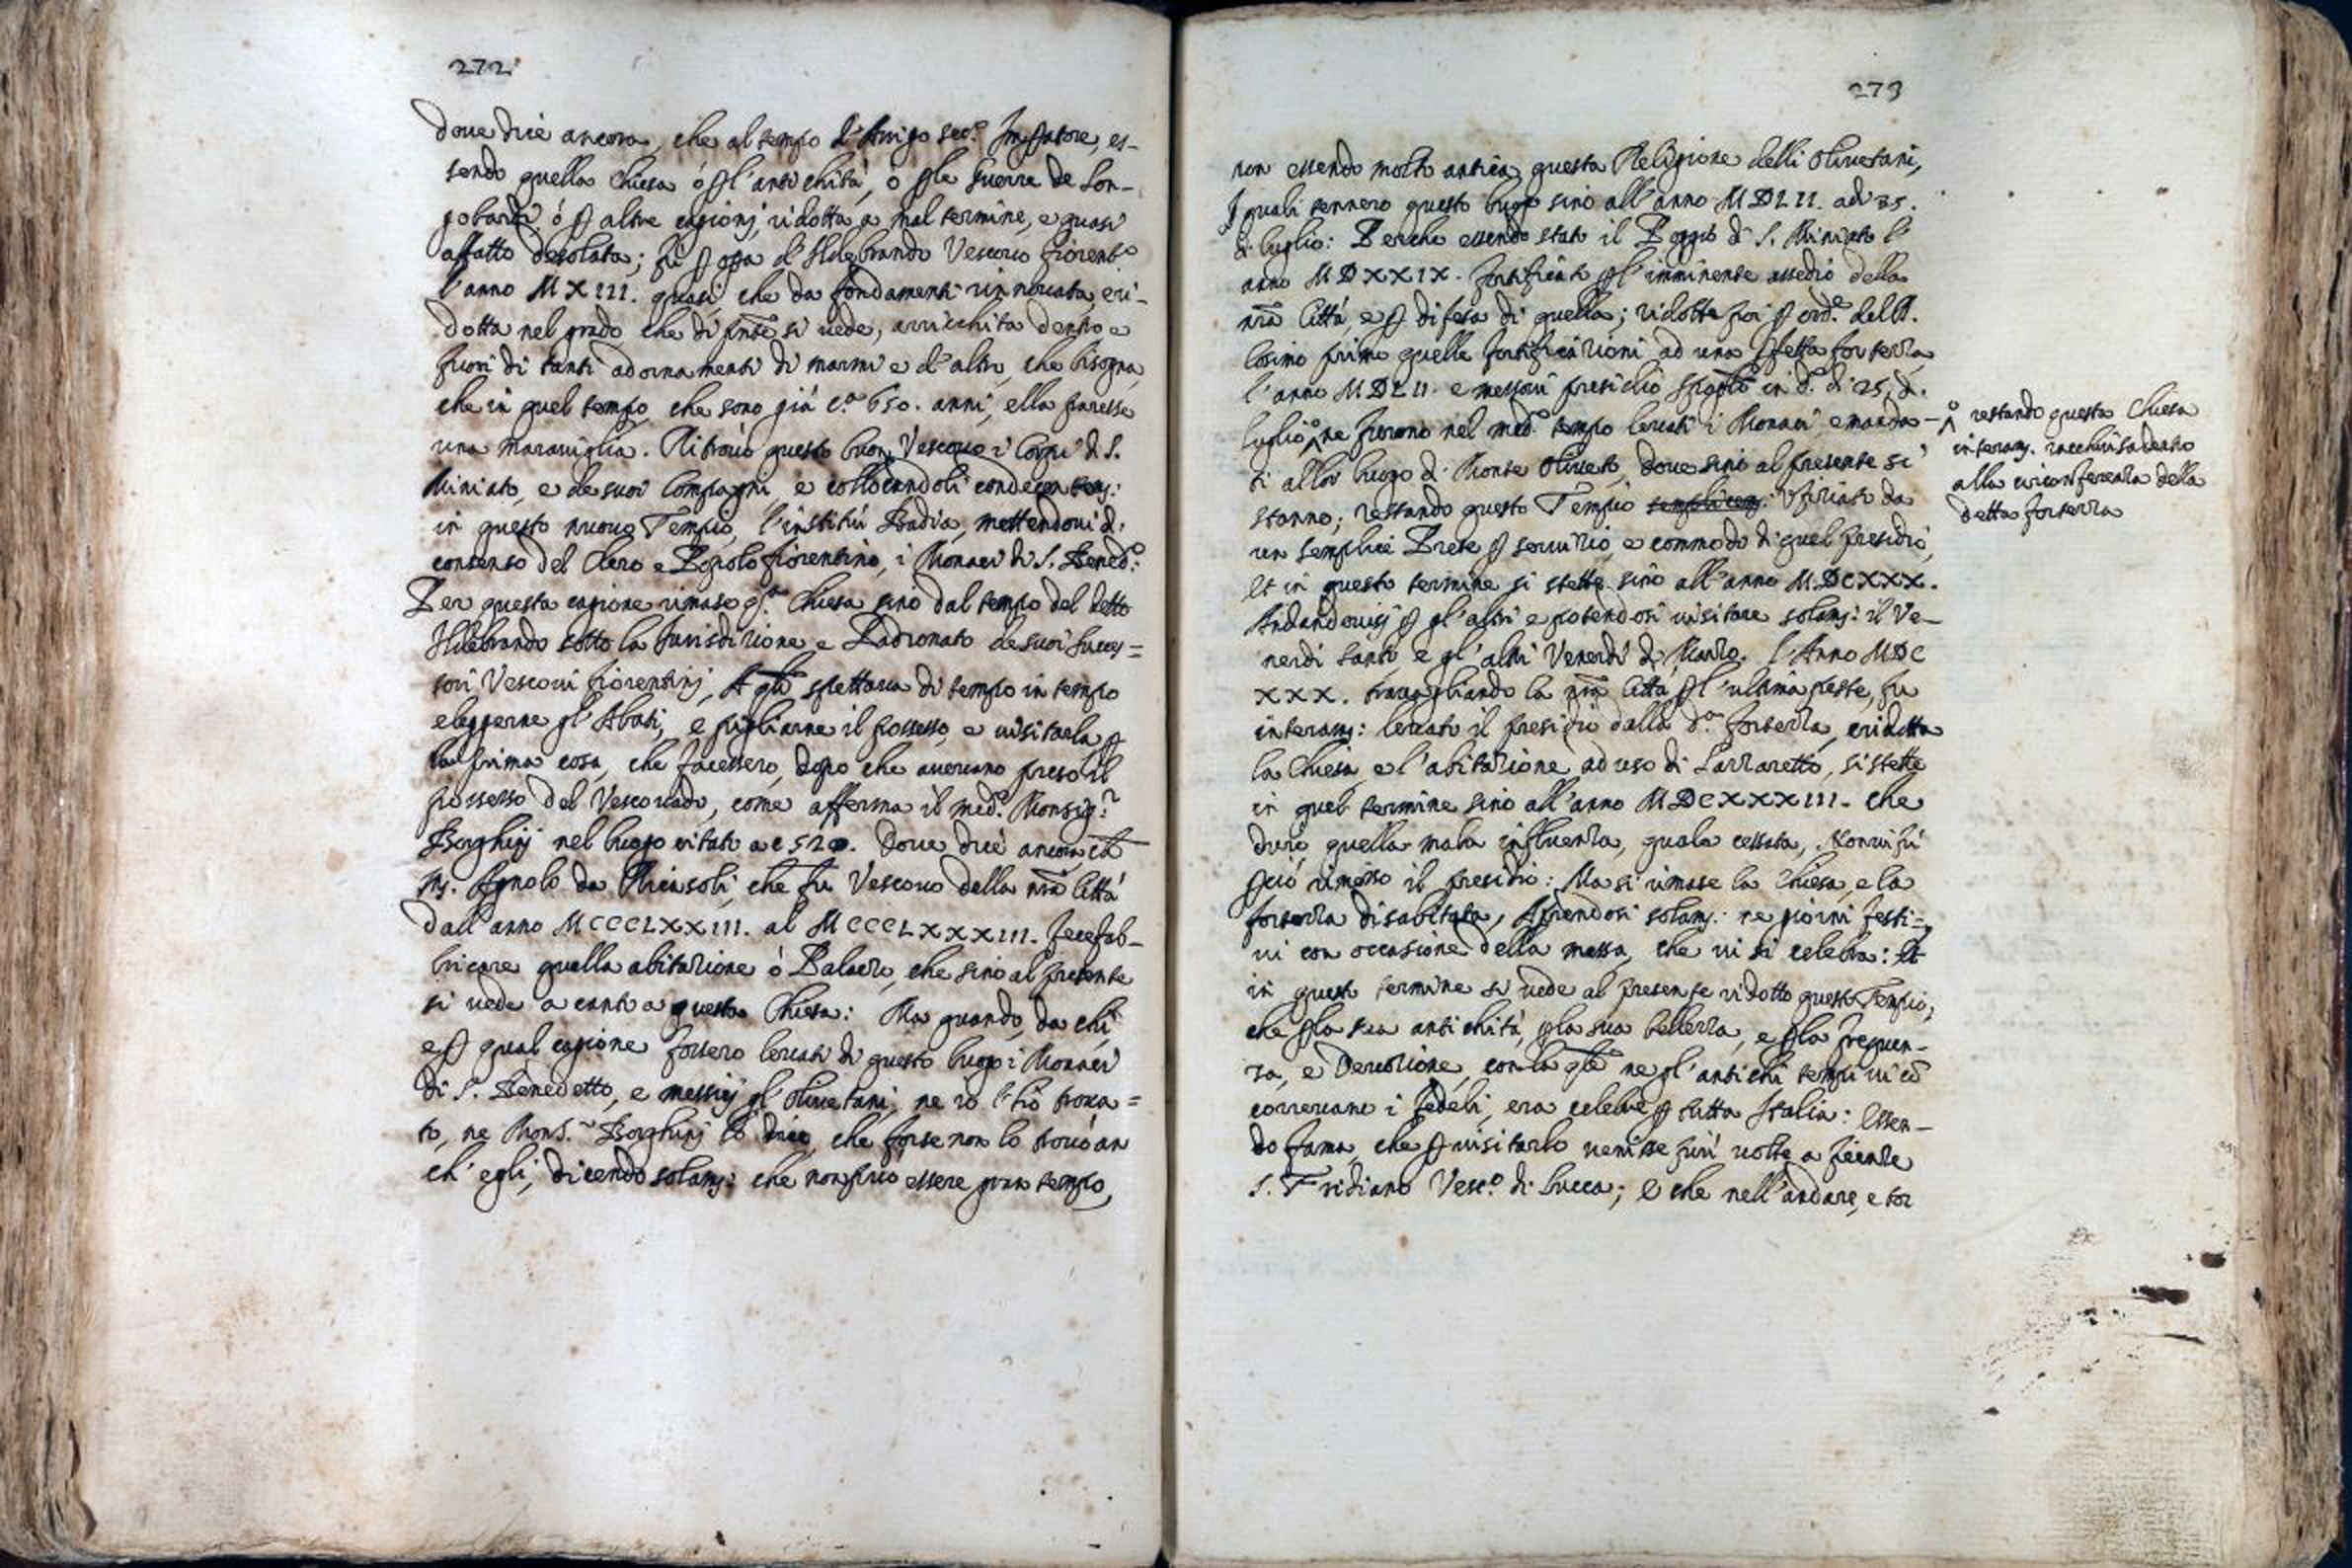 272
Doue dice ancora, che al tempo d'Arrigo sec.º Imp̱atore, es-
sendo quella Chiesa ó ꝑ l'antichità, ò ꝑ le Guerre de Lon-
gobardi, ó ꝑ altre cagionj, ridotta a mal termine, e quasi
affatto desolata; fù ꝑ opa d'Ildebrando Vescouo fiorent.º
l'anno MXIII. quasi che da fondamenti rinnouata, e ri-
dotta nel grado che di pnte si uede, arricchita dentro e
fuori di tanti adornamenti di marmi e d'altro, che bisogna
che in quel tempo, che sono già c.ª 650. anni, ella paresse
una marauiglia. Ritrouò questo buon Vescouo i Corpi di S.
Miniato, e de suoi Compagni, e collocandoli
in questo nuouo Tempio, l'institui Badia, mettendoui d.
consenso del Clero e Popolo fiorentino, i Monaci di S. Bened.º:
Per questa cagione rimase q.ª Chiesa sino dal tempo del detto
Ildebrando sotto la Jurisdizione e Padronato de suoi succes=
sori Vescoui fiorentinj, A qli spettaua di tempo in tempo
eleggerne gl'Abati, e pigliarne il possesso, e uisitarla ꝑ
la prima cosa, che facessero, dopo che aueuano preso il
possesso del Vescouado, come afferma il med.º Monsig.r
Borghinj nel luogo citato a c 520. Doue dice ancora ch
m. Agnolo da Ricasoli, che fu Vescouo della nra Città
dall'anno MCCCLXXIII. al MCCCLXXXIII. fece fab-
bricare quella abitazione ó Palazzo, che sino al presente
si uede a canto a questa Chiesa: Ma quando, da chi
e ꝑ qual cagione fossero leuati di questo luogo i Monaci
di S. Benedetto, e messiuj gl'Oliuetani, ne io l'hò troua=
to, ne Mons.r Borghinj lo dice, che forse non lo trouò an
ch'egli, dicendo solam: che non può essere gran tempo,
273
non essendo molto antica questa Religione delli Oliuetani,
I quali tennero questo luogo sino all'anno MDLII. adi 25.
di luglio: Perche essendo stato il Poggio di S. Miniato l'
anno MDXXIX. fortificato ꝑ l'imminente assedio della
nra Città, e ꝑ difesa di quella; ridotte poi ꝑ ord.e dell
Cosimo primo quelle fortificazioni ad una ꝑfetta fortezza
l'anno MDLII. e messoui presidio in d.º di 25. d.
luglio ne furono nel med.º tempo leuati i Monaci, e manda-
ti allor luogo di Monte Oliueto, doue sino al presente si
stanno; restando questo Tempio semplicem: Vfiziato da
un semplice Prete ꝑ seruizio, e commodo di quel presidio,
Et in questo termine si stette sino all'anno MDCXXX.
Andandouisi ꝑ gl'altri e potendosi uisitare solam: il Ve-
nerdi Santo e gl'altri Venerdi di Marzo. l'Anno MDC
XXX. trauagliando la nra Città ꝑ l'ultima peste, fu
interam: leuato il presidio dalla d.ª fortezza, e ridotta
la Chiesa, e l'abitazione ad uso di Lazzaretto, si stette
in quel termine sino all'anno MDCXXXIII. che
durò quella mala influenza, quale cessata, Non ui fù
ꝑciò rimesso il presidio: Ma si rimase la Chiesa, e la
fortezza disabitata, Aprendosi solam: ne giorni festi=
ui con occasione della messa, che ui si celebra: Et
in questo termine si uede al presente ridotto questo Tempio,
che ꝑ la sua antichità, ꝑ la sua bellezza, e ꝑ la frequen-
za, e Deuozione, con la qle ne gl'antichi tempi ui cō
correuano i fedeli, era celebre ꝑ tutta Italia: Essen-
do fama, che ꝑ uisitarlo uenisse piu uolte a firenze
S. Fridiano Vesc.º di lucca; E che nell'andare, e tor
restando questa Chiesa
interam. racchiusa dentro
alla circonferenza della
detta fortezza